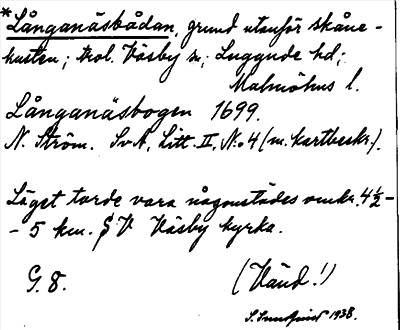 *Långanäsbådan, grund utanför skåne-
kusten; trol. Väsby sn; Luggude hd;
Malmöhus l.
Långanäsbogen 1699.
N. Ström. SvA, Litt. II, No. 4 (m. kartbeskr.).
Läget torde vara någonstädes omkr. 4½-
- 5 km. SV Väsby kyrka.
G. 8. (Vänd!)
1938.